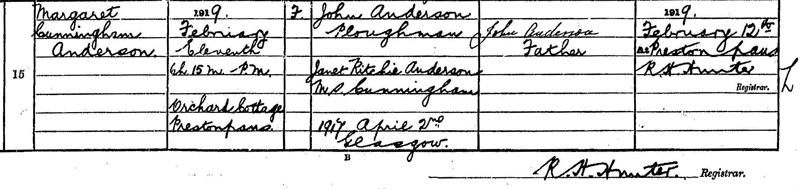 Margaret
Cunningham
Anderson
15
1919.
February
Eleventh
6h. 15 m. P.M.
Orchard Cottage
Prestonpans.
F.
John Anderson
Ploughman
Janet Ritchie Anderson
M.S. Cunningham
1917 April 2nd
Glasgow.
John Anderson
Father
1919.
February 12th
at Prestonpans
R. H. Hunter
Registrar.
B
R. H. Hunter. Registrar.